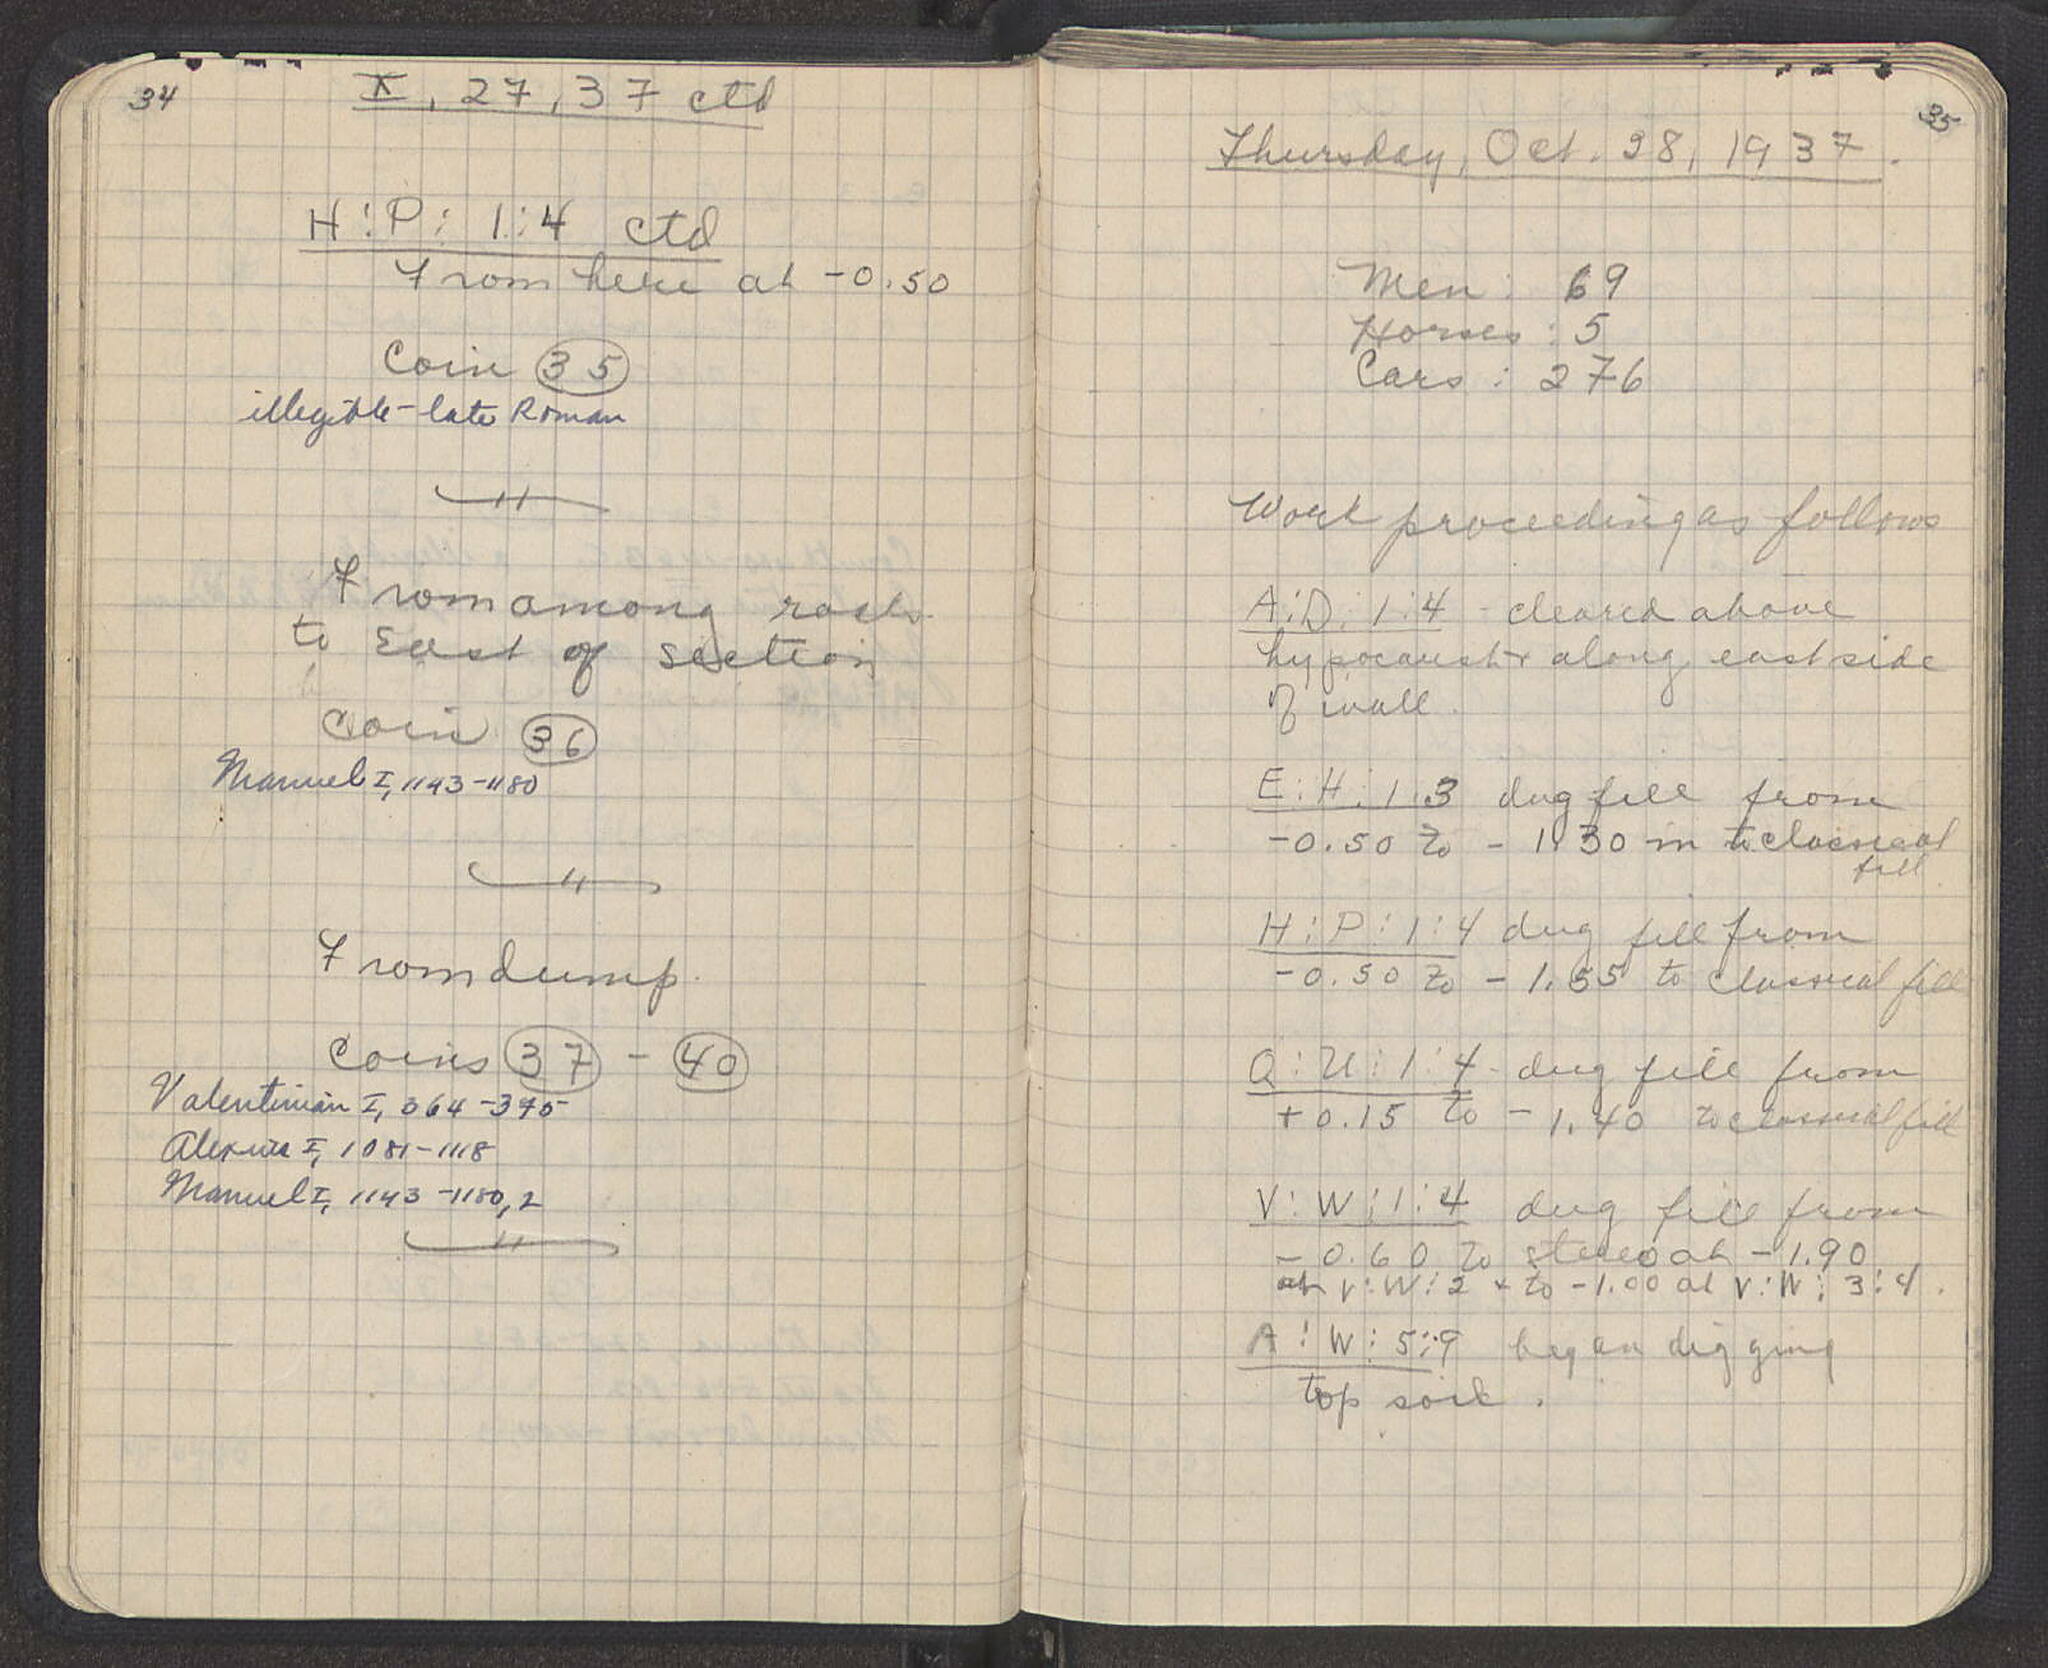 34
X, 27, 37 ctd
H:P: 1:4 ctd
From here at -0.50
Coin 35
illegible - late Roman
From among rocks
to East of section
Coin 36
Manuel I, 1143-1180
From dump.
Coins 37 - 40
Valentinian I, 364-375
Alexius I, 1081-1118
Manuel I, 1143-1180, 2
35
Thursday, Oct. 28, 1937.
Men: 69
Horses: 5
Cars: 276
Work proceeding as follows
A:D:1:4 - cleared above
hypocaust + along east side
of wall.
E:H:1:3 dug fill from
-0.50 to -1.30 m to classical
fill
H:P:1:4 dug fill from
-0.50 to -1.55 to classical fill
Q:U:1:4 - dug fill from
+0.15 to -1.40 to classical fill
V:W:1:4 dug fill from
-0.60 to stereo at -1.90
at V:W:2 + to -1.00 at V:W:3:4.
A:W:5:9 began digging
top soil.